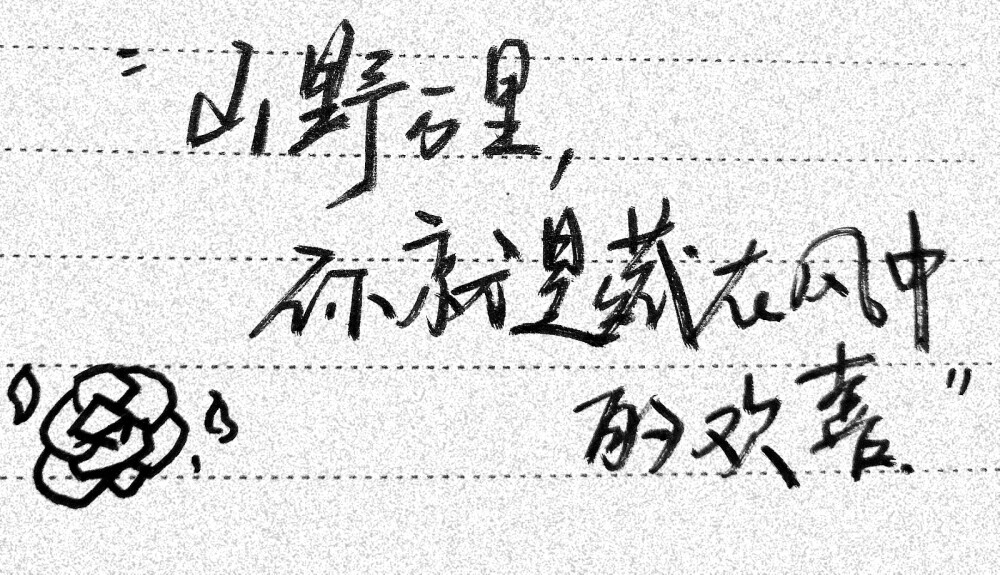 "山野万里,
你就是藏在风中
的欢喜."